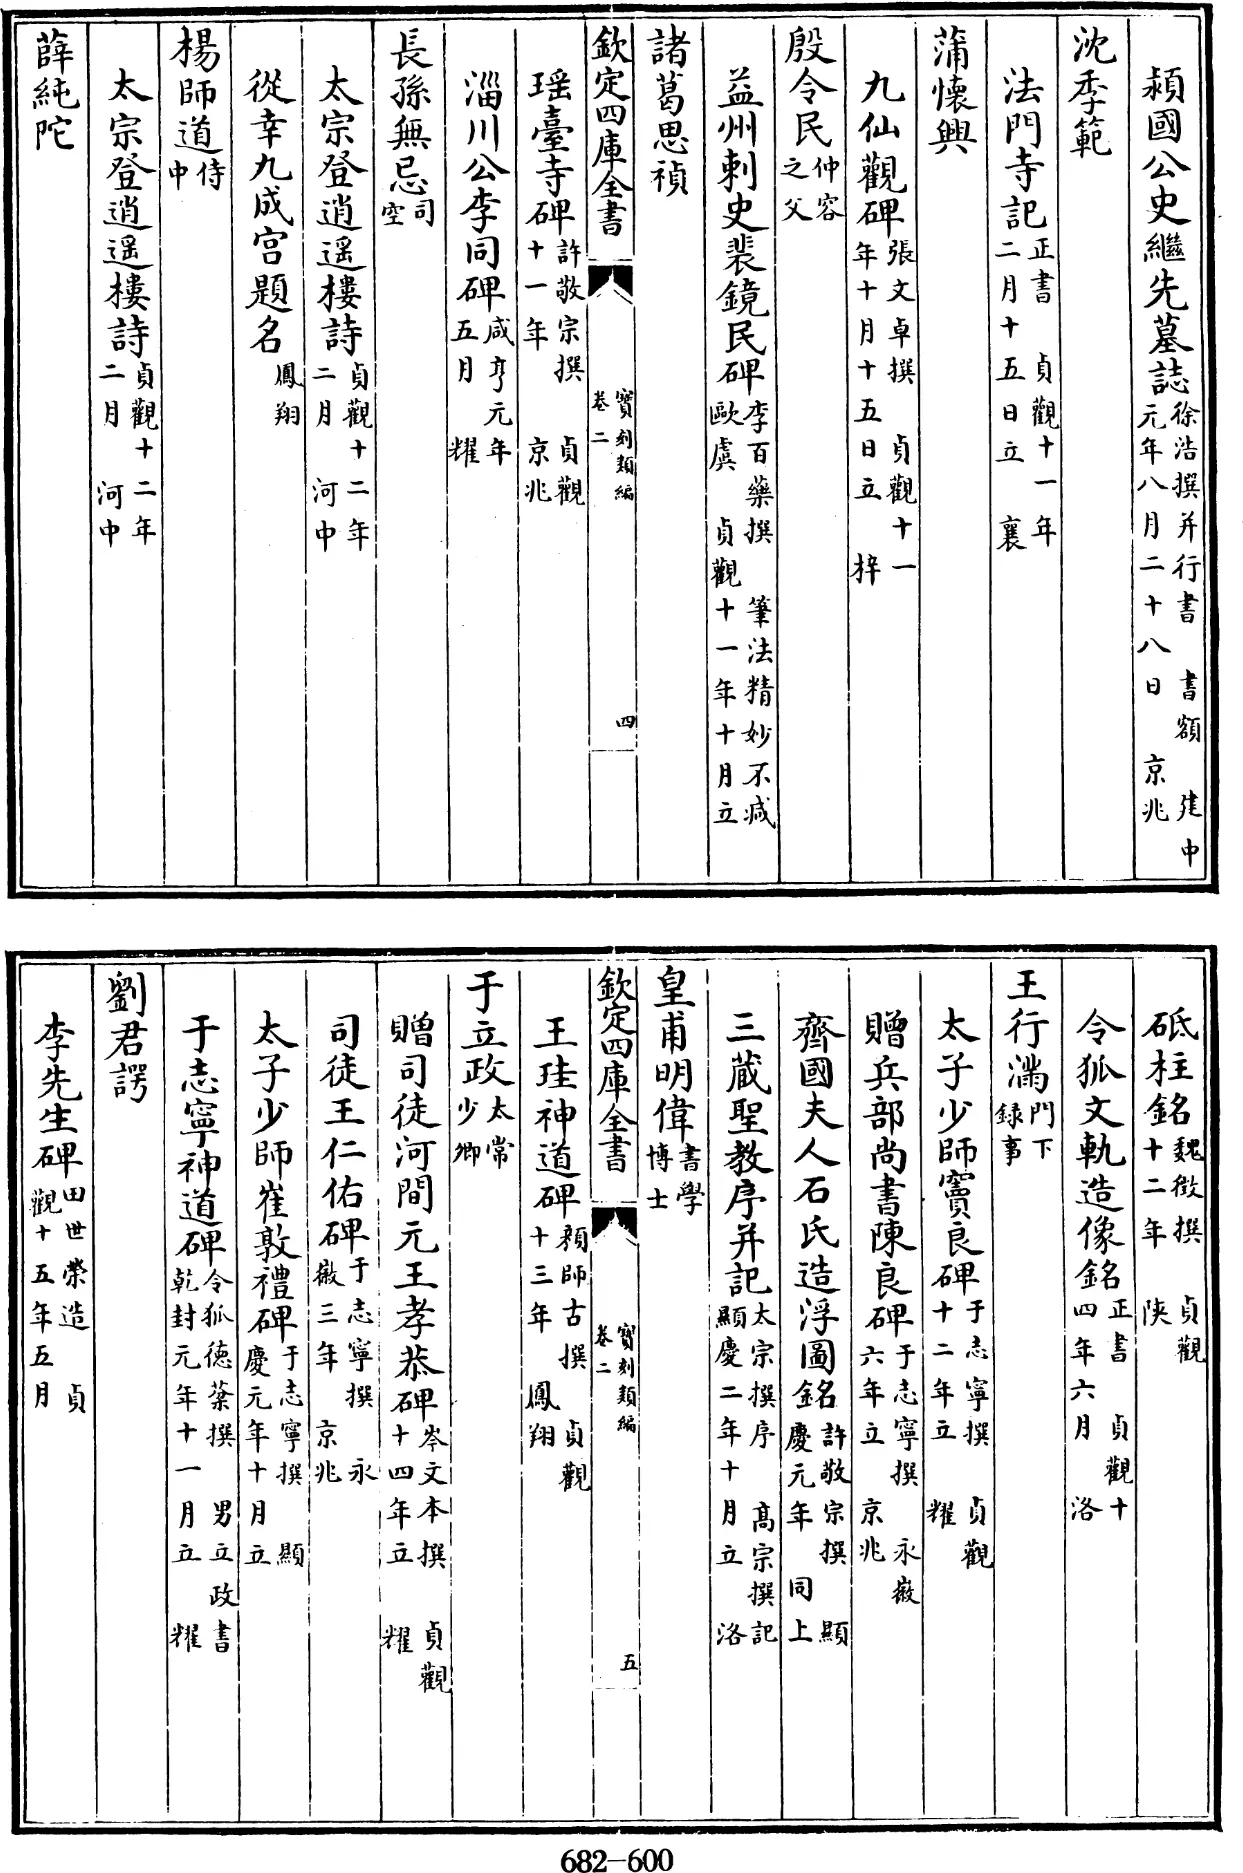 潁國公史繼先墓誌徐浩撰并行書　書額　建中元年八月二十八日　京兆
沈季範
法門寺記正書　貞觀十一年二月十五日立　襄
蒲懷興
九仙觀碑張文卓撰　貞觀十一年十月十五日立　梓
殷令民仲容之父
益州刺史裴鏡民碑李百藥撰　筆法精妙不減歐虞　貞觀十一年十月立
諸葛思禎
欽定四庫全書　寳刻類編卷二　四
瑶臺寺碑許敬宗撰　貞觀十一年　京兆
淄川公李同碑咸亨元年五月　耀
長孫無忌司空
太宗登逍遥樓詩貞觀十二年二月　河中
從幸九成宫題名鳳翔
楊師道侍中
太宗登逍遥樓詩貞觀十二年二月　河中
薛純陀
砥柱銘魏徴撰　貞觀十二年　陜
令狐文軌造像銘正書　貞觀十四年六月　洛
王行滿門下録事
太子少師竇良碑于志寧撰　貞觀十二年立　耀
贈兵部尚書陳良碑于志寧撰　永徽六年立　京兆
齊國夫人石氏造浮圖銘許敬宗撰　顯慶元年　同上
三藏聖教序并記太宗撰序　髙宗撰記　顯慶二年十月立　洛
皇甫明偉書學博士
欽定四庫全書　寳刻類編卷二　五
王珪神道碑顔師古撰　貞觀十三年　鳳翔
于立政太常少卿
贈司徒河間元王孝恭碑岑文本撰　貞觀十四年立　耀
司徒王仁佑碑于志寧撰　永徽三年　京兆
太子少師崔敦禮碑于志寧撰　顯慶元年十月立
于志寧神道碑令狐徳棻撰　男立政書　乾封元年十一月立　耀
劉君諤
李先生碑田世榮造　貞觀十五年五月
682-600